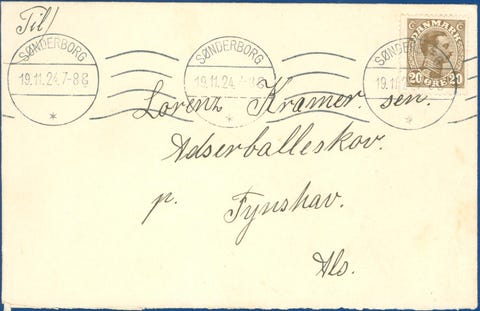 Til/
SØNDERBORG
19.11.24.7-8E
*
SØNDERBORG
19.11.24.
-8E
*
SØNDERB
19.1
*
DANMARK
20 ØRE 20
Lorenz Kramer. sen.
Adserballeskov.
p. Fynshav.
Als.